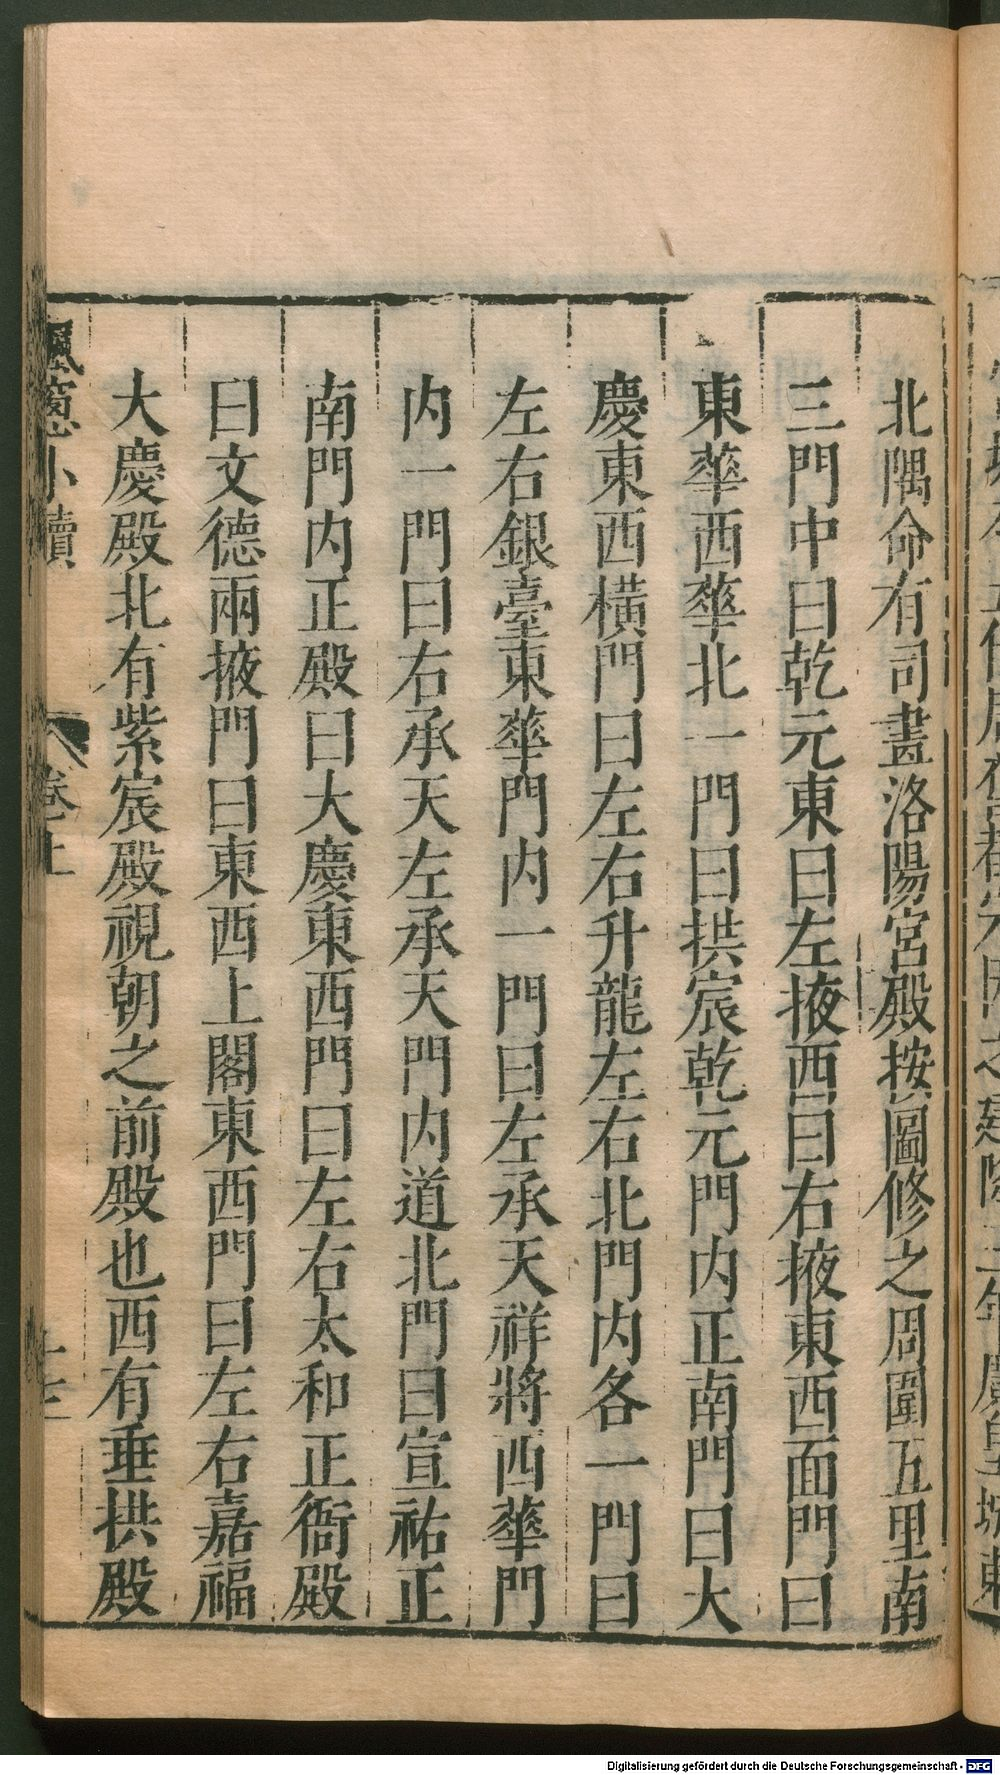 北隅命有司畫洛陽宮殿按圖修之周圍五里南
三門中曰乾元東曰左掖西曰右掖東西面門曰
東華西華北一門曰拱宸乾元門内正南門曰大
慶東西橫門曰左右升龍左右北門内各一門曰
左右銀臺東華門内一門曰左承天祥將西華門
内一門曰右承天左承天門内道北門曰宣祐正
南門内正殿曰大慶東西門曰左右太和正衙殿
曰文德兩掖門曰東西上閤東西門曰左右嘉福
大慶殿北有紫宸殿視朝之前殿也西有垂拱殿
楓窻小牘
卷上
Digitalisierung gefördert durch die Deutsche Forschungsgemeinschaft - DFG